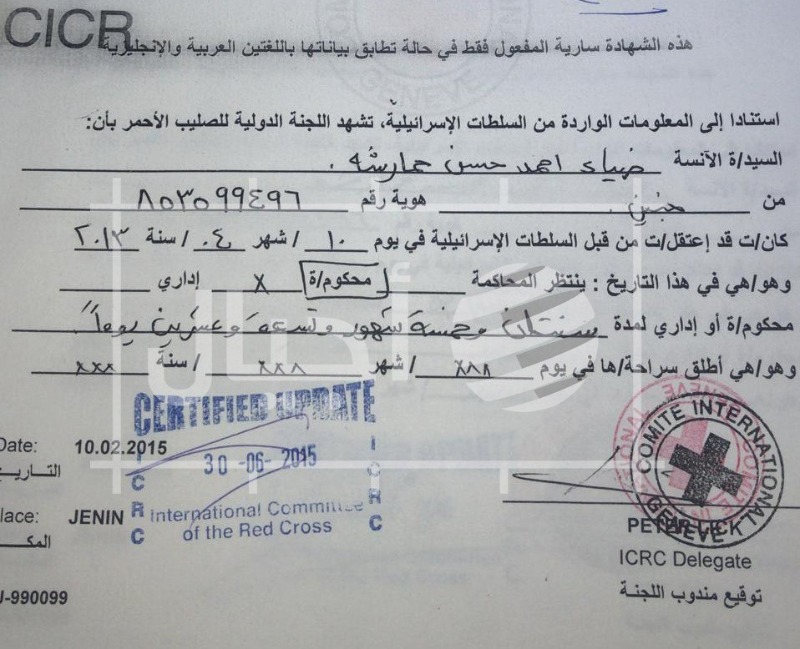 CICR
هذه الشهادة سارية المفعول فقط في حالة تطابق بياناتها باللغتين العربية والإنجليزية
استنادا إلى المعلومات الواردة من السلطات الإسرائيلية، تشهد اللجنة الدولية للصليب الأحمر بأن:
السيد/ة الآنسة ضياء احمد حسن حمارشه
من جنين هوية رقم ٨٥٣٥٩٩٤٩٦
كان/ت قد إعتقل/ت من قبل السلطات الإسرائيلية في يوم ١٠ / شهر ٠٤ / سنة ٢٠١٣
وهو/هي في هذا التاريخ : ينتظر المحاكمة محكوم/ة x إداري
محكوم/ة أو إداري لمدة سنتان وخمسة شهور وتسعة وعشرين يوماً
وهو/هي أطلق سراحة/ها في يوم xxx / شهر xxx / سنة xxx
أحال
CERTIFIED UPDATE
30-06-2015
ICRC
ICRC
International Committee
of the Red Cross
Date: 10.02.2015
التاريخ
JENIN
990099
COMITE INTERNATIONAL
GENEVE
PETER LICK
ICRC Delegate
توقيع مندوب اللجنة